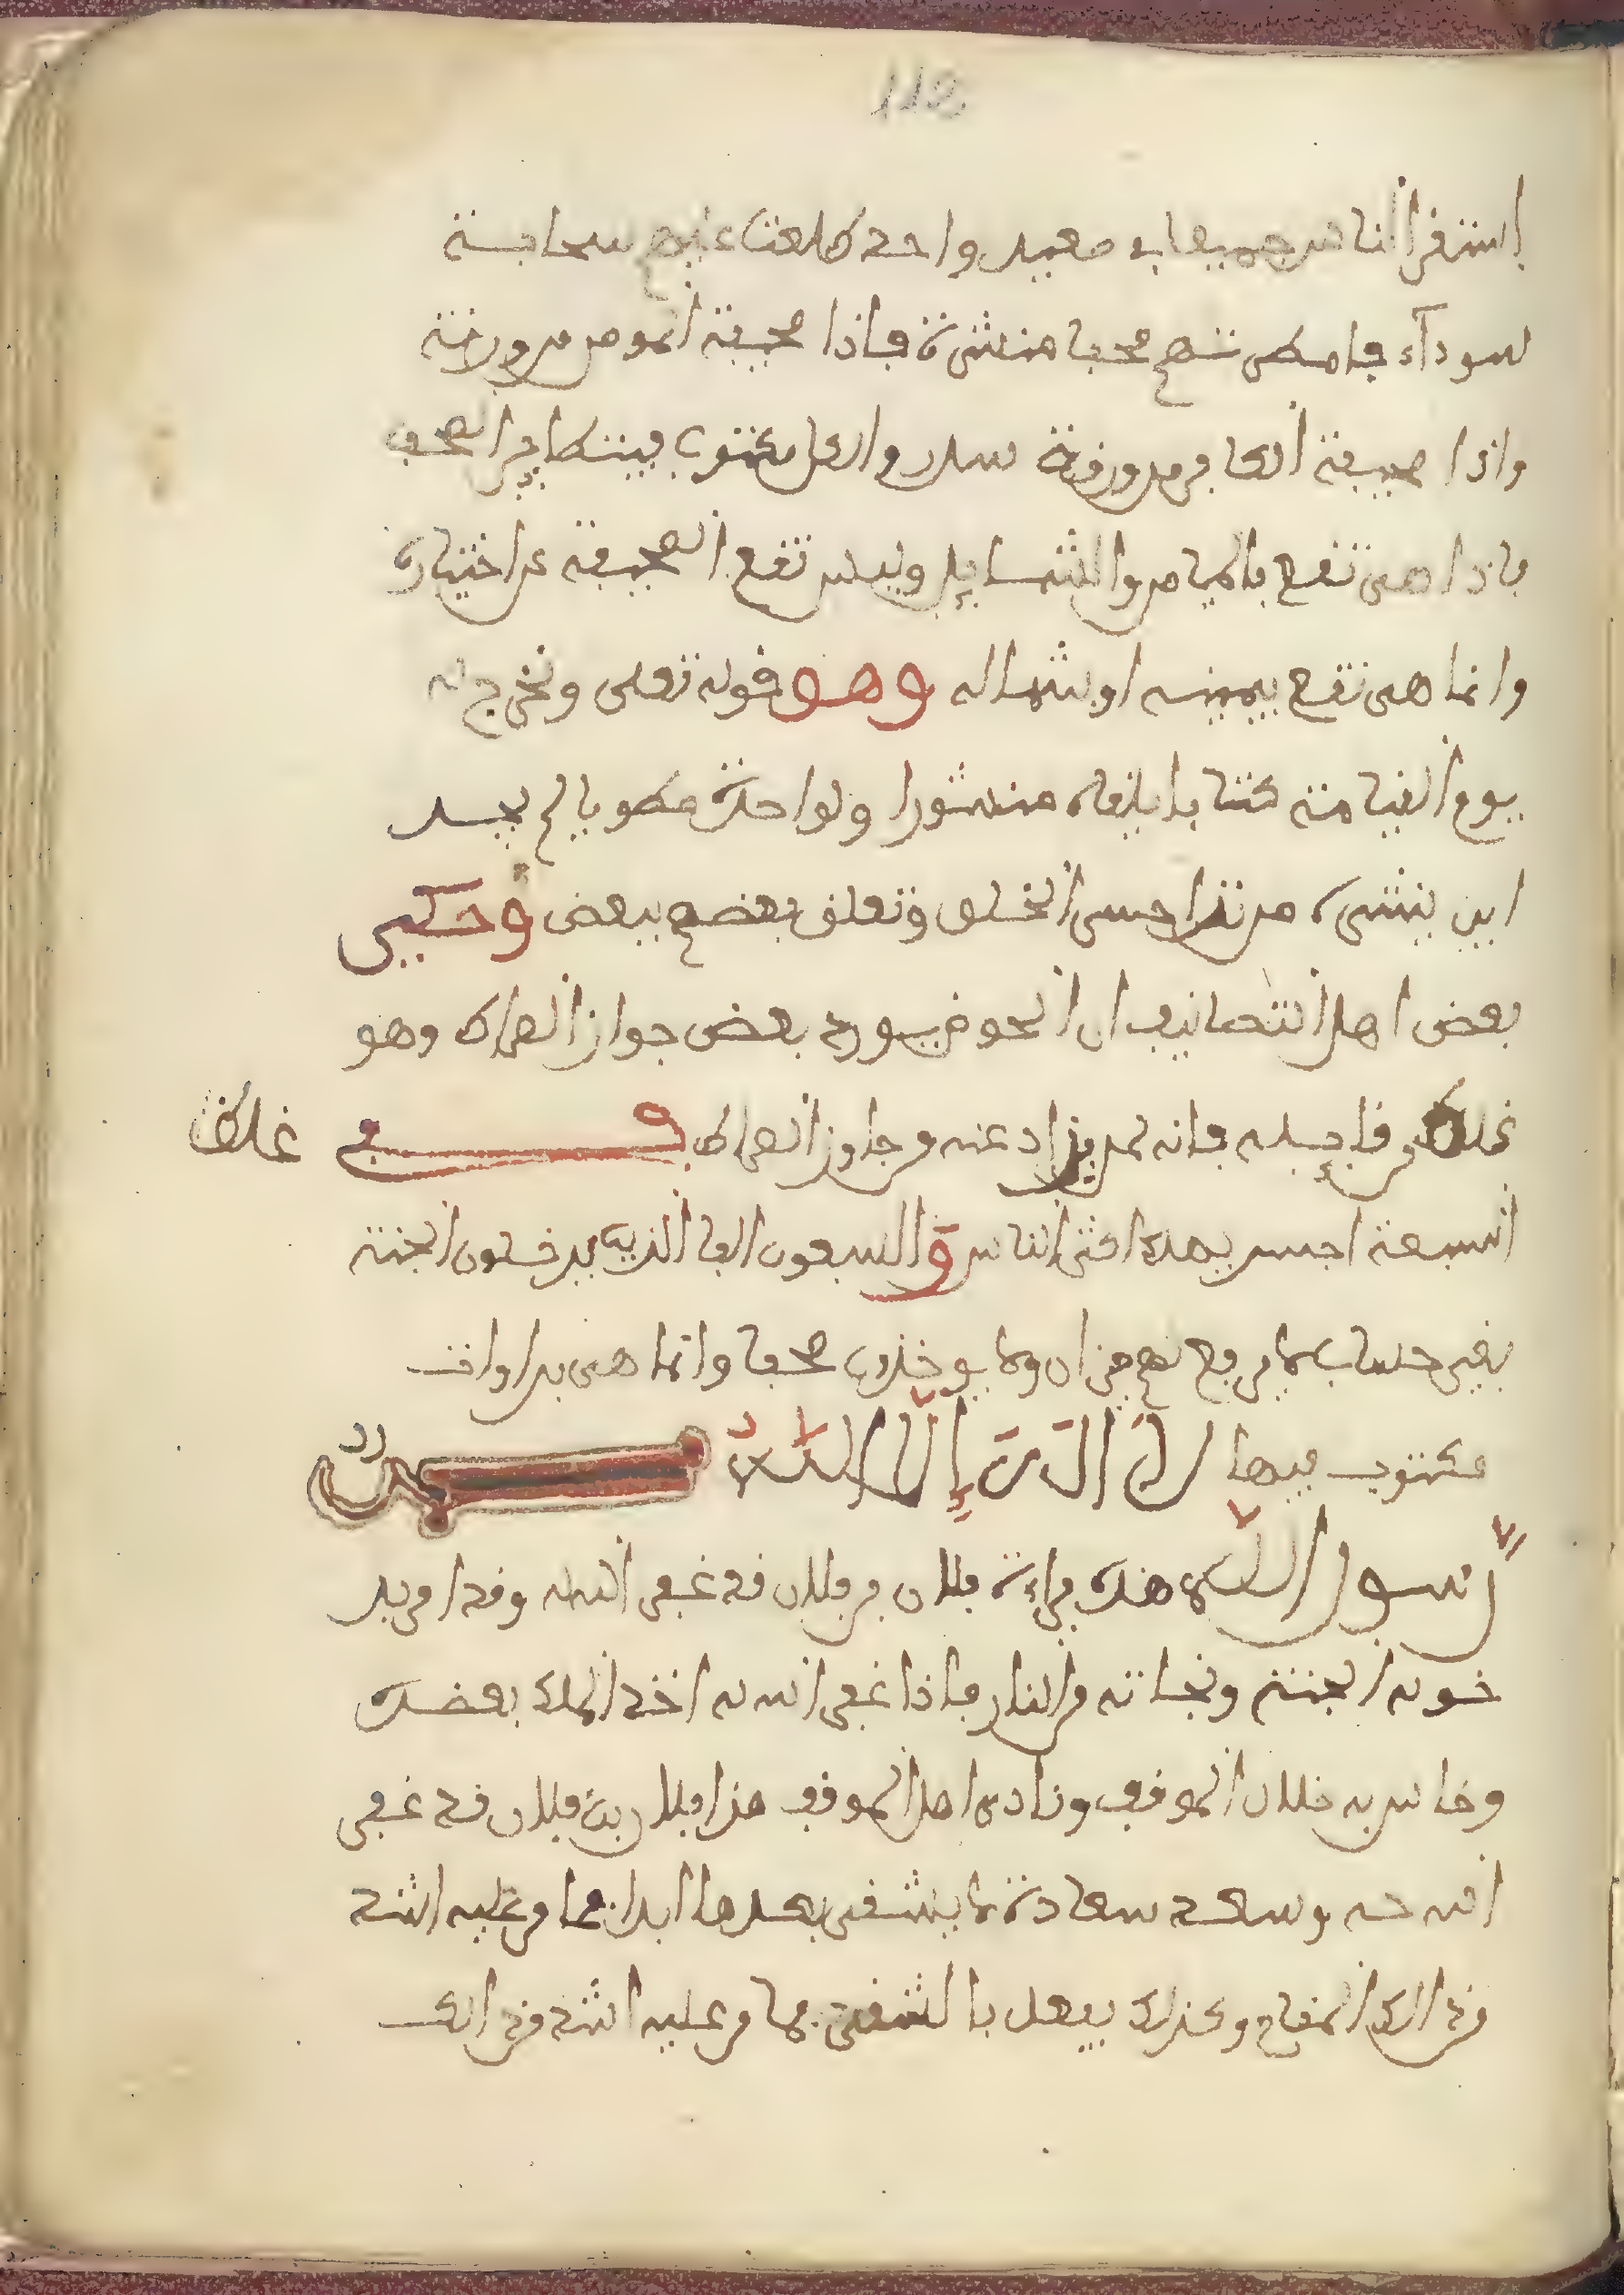 112
استقر الناس جميعا في صعيد واحد طلعت عليهم سحابة
سودآء فامطرتهم صحفا منشرة فاذا صحيفة المومن من ورقة
واذا صحيفة الكافر من ورقة سدر والكل مكتوب فيتطاير الصحف
فاذا هي تقع بالميامن والشمايل وليس تقع الصحيفة عن اختياره
وانما هي تقع بيمينه او بشماله وهو قوله تعلى ونخرج له
يوم القيامة كتابا يلقاه منشورا ولو احدة مطويا لم يجد
اين ينشره من تزاحم الخلق وتعلق بعضهم ببعض وحكى
بعض اهل التصانيف ان الحوض يورد بعض جواز الصراط وهو
غلط من قايله فانه لم يزاد عنه من جاوز الصراط فهي غلط
السبعة اجسر يهلك اكثر الناس والسبعون الفا الذين يدخلون الجنة
بغير حساب لا يرفع لهم ميزان ولا يوخذون صحفا وانما هي براوات
مكتوب فيها لا اله الا الله محمد
رسول الله هذه براءة فلان بن فلان قد غفر الله وقد امر بد
خوله الجنة ونجاته من النار فاذا غفر الله له اخذ الملك بعضده
وخاس به خلال الموقف ونادى اهل الموقف هذا فلان بن فلان قد غفر
الله له وسعد سعادة لا يشقى بعدها ابدا فما مر عليه اشد
من ذالك المقام وكذلك يفعل بالشقي فما مر عليه اشد من ذالك